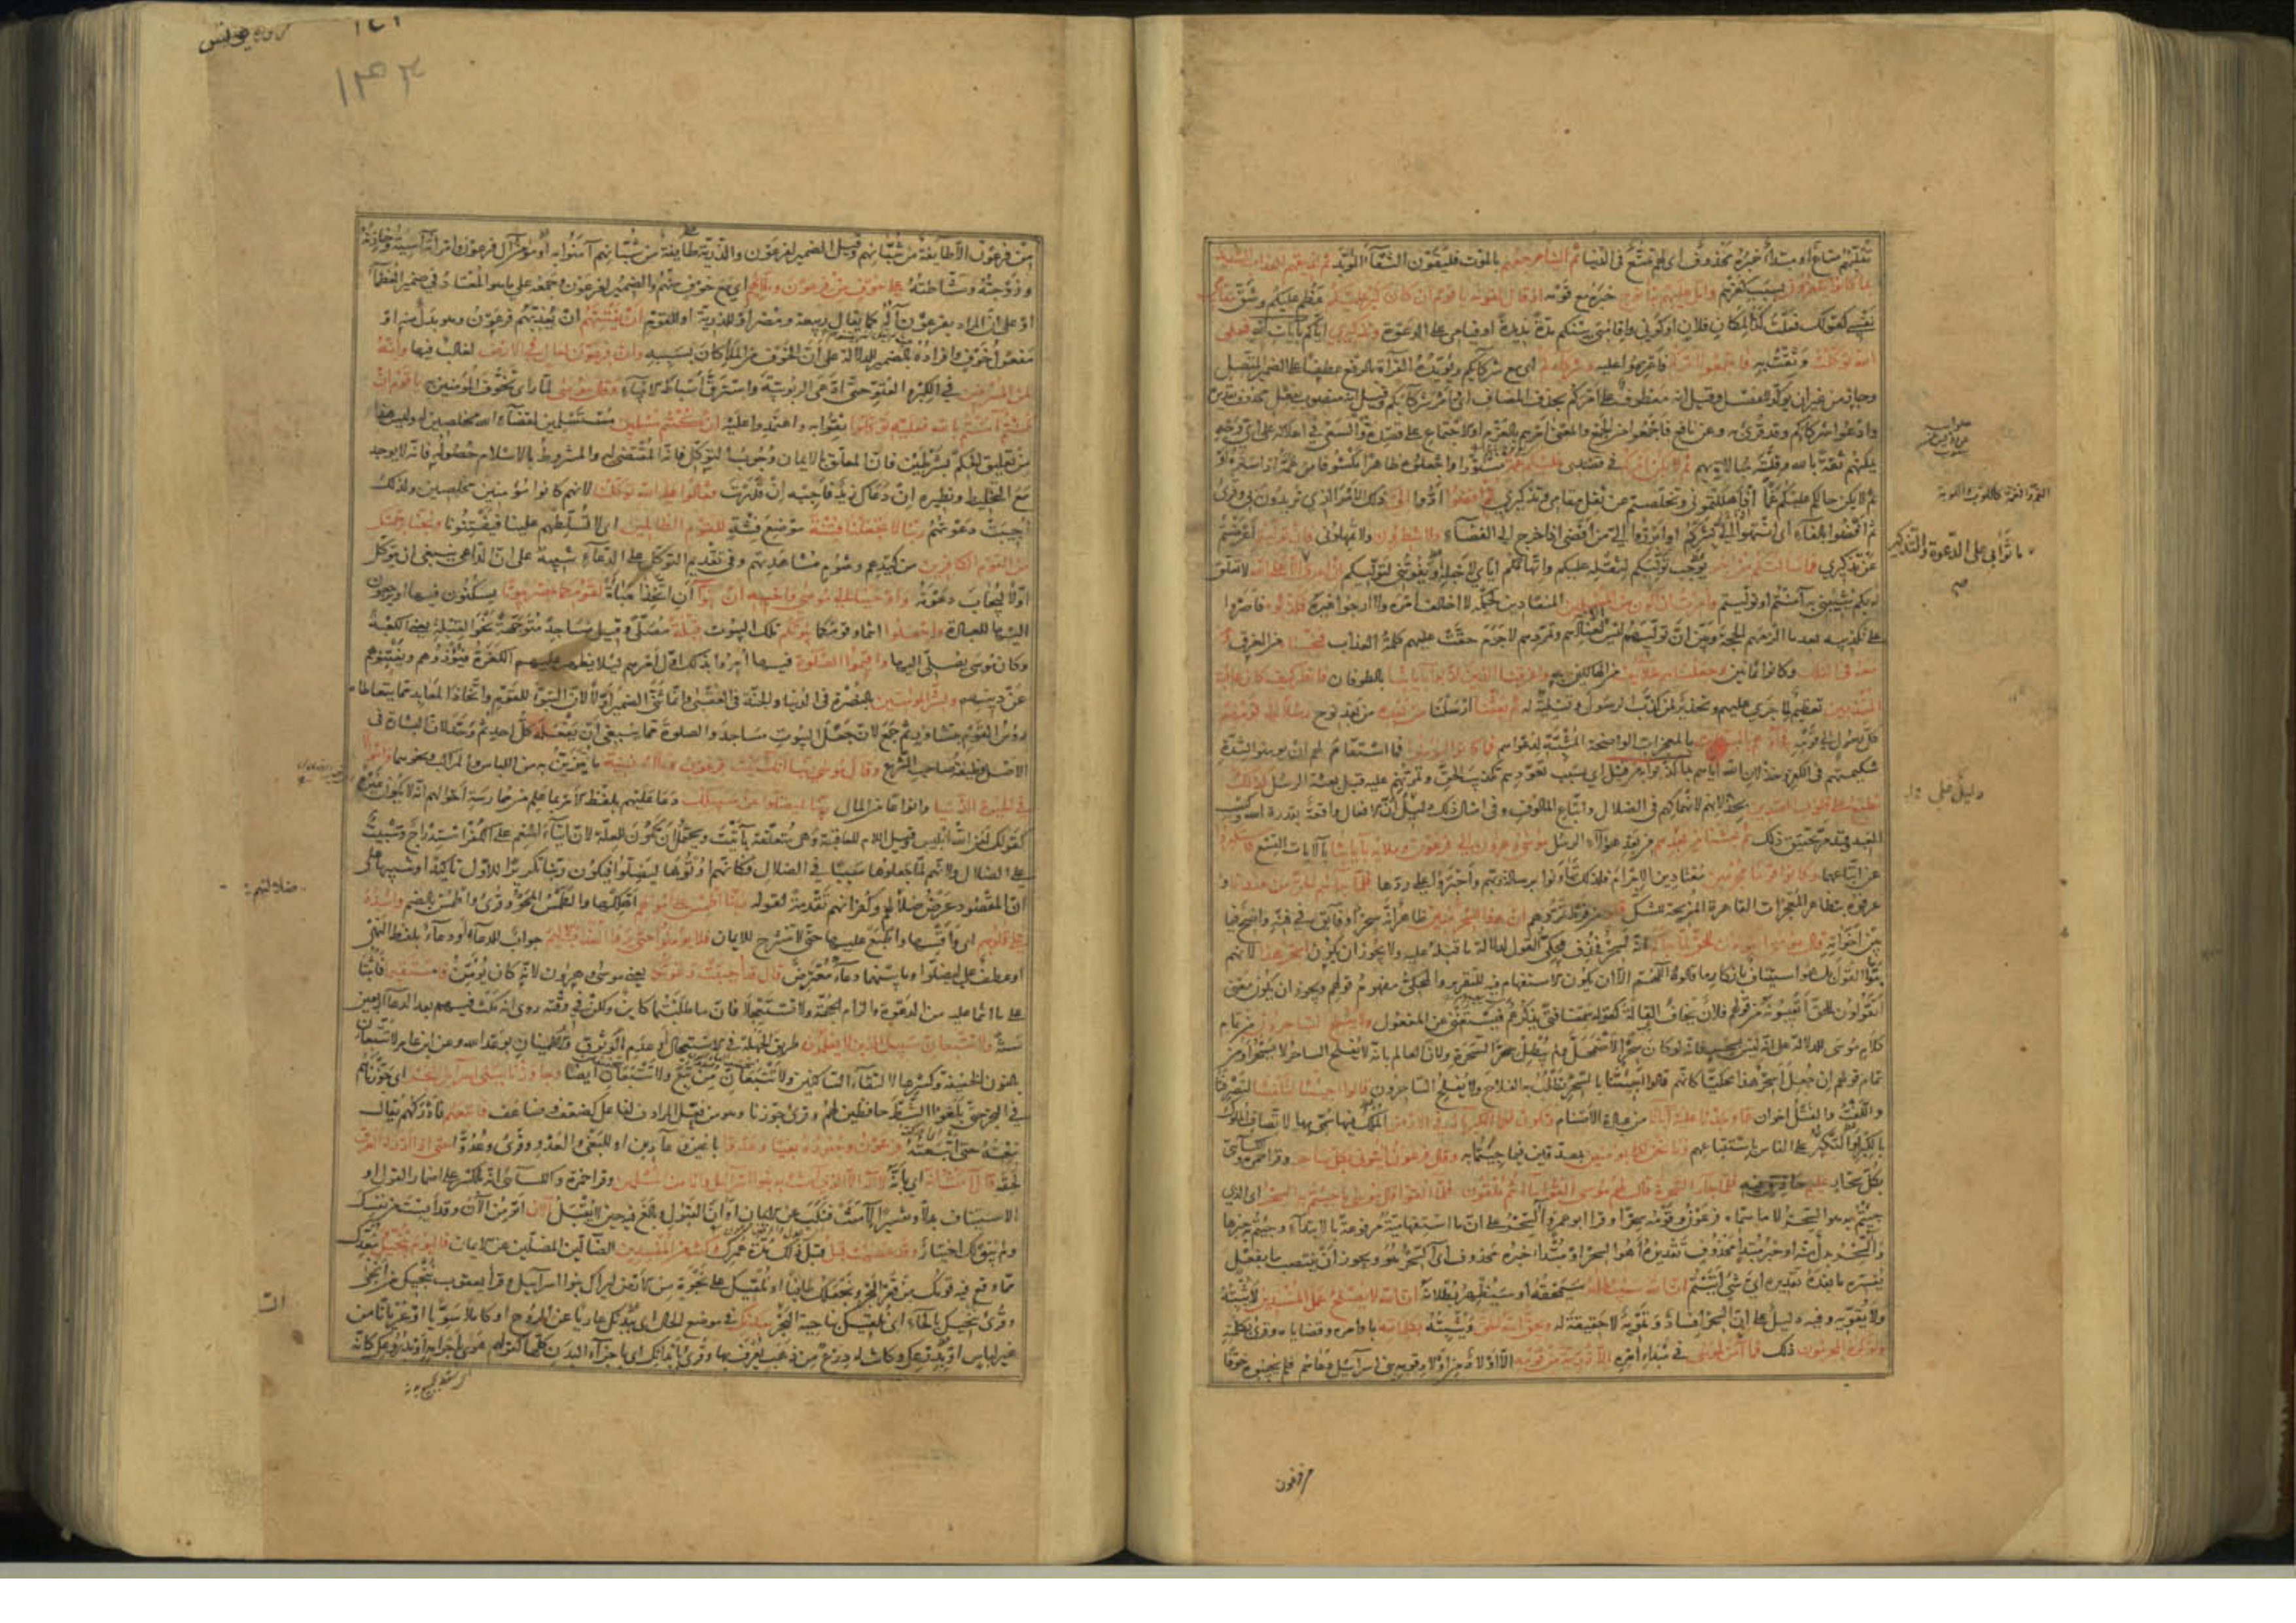 تقلبهم متاع او مبتدأ خبره محذوف اى لهم تمتع فى الدنيا ثم الينا مرجعهم بالموت فيلقون الشقاء المؤبد ثم نذيقهم العذاب الشديد
بما كانوا يكفرون بسبب كفرهم واتل عليهم نبأ نوح خبره مع قومه اذ قال لقومه يا قوم ان كان كبر عليكم عظم عليكم وشق مقامى
نفسى كقولك فعلت كذا لمكان فلان او كونى واقامتى بينكم مدة مديدة او قيامى على الدعوة وتذكيرى اياكم بآيات الله فعلى
الله توكلت وثقت به فاجمعوا امركم فاعزموا عليه وشركاءكم اى مع شركائكم ويؤيده القراءة بالرفع عطفا على الضمير المتصل
وجاز من غير ان يؤكد للفصل وقيل انه معطوف على امركم بحذف المضاف اى وامر شركائكم وقيل انه منصوب بفعل محذوف تقديره
وادعوا شركاءكم وقد قرئ به وعن نافع فاجمعوا من الجمع والمعنى امرهم بالعزم او الاجتماع على قصده والسعى فى اهلاكه على اى وجه
يمكنهم ثقة بالله وقلة مبالاة بهم ثم لا يكن امركم فى قصدى عليكم غمة مستورا واجعلوه ظاهرا مكشوفا من غمه اذا ستره او
ثم لا يكن حالكم عليكم غما اذا اهلكتمونى وتخلصتم من ثقل مقامى وتذكيرى ثم اقضوا ادوا الى ذلك الامر الذى تريدون بى وقرئ
ثم افضوا بالفاء اى انتهوا الى بشركم او ابرزوا الى من افضى اذا خرج الى الفضاء ولا تنظرون ولا تمهلونى فان توليتم اعرضتم
عن تذكيرى فما سألتكم من اجر يوجب توليكم لثقله عليكم واتهامكم اياى لاجله او يفوتنى لتوليكم ان اجرى الا على الله لا تعلق
له بكم يثيبنى به آمنتم او توليتم وامرت ان اكون من المسلمين المنقادين لحكمه لا اخالف امره ولا ارجو غيره فكذبوه فاصروا
على تكذيبه بعد ما الزمهم الحجة وبين ان توليهم ليس الا لعنادهم وتمردهم لا جرم حقت عليهم كلمة العذاب فنجيناه من الغرق ومن
معه فى الفلك وكانوا ثمانين وجعلناهم خلائف من الهالكين به واغرقنا الذين كذبوا بآياتنا بالطوفان فانظر كيف كان عاقبة
المنذرين تعظيم لما جرى عليهم وتحذير لمن كذب الرسول وتسلية له ثم بعثنا ارسلنا من بعده من بعد نوح رسلا الى قومهم
كل رسول الى قومه فجاؤهم بالبينات بالمعجزات الواضحة المثبتة لدعواهم فما كانوا ليؤمنوا فما استقام لهم ان يؤمنوا لشدة
شكيمتهم فى الكفر وخذلان الله اياهم بما كذبوا به من قبل اى بسبب تعودهم تكذيب الحق وتمرنهم عليه قبل بعثة الرسل كذلك
نطبع على قلوب المعتدين بخذلانهم لانهماكهم فى الضلال واتباع المألوف وفى امثال ذلك دليل على ان الافعال واقعة بقدرة الله وكسب
العبد وقد مر تحقيق ذلك ثم بعثنا من بعدهم من بعد هؤلاء الرسل موسى وهرون الى فرعون وملائه بآياتنا بالآيات التسع فاستكبروا
عن اتباعهما وكانوا قوما مجرمين معتادين الاجرام فلذلك تهاونوا برسالة ربهم واجترؤا على ردها فلما جاءهم الحق من عندنا و
عرفوه بتظاهر المعجزات القاهرة المزيحة للشك قالوا من فرط تمردهم ان هذا لسحر مبين ظاهر انه سحر او فائق فى فنه واضح فيما
بين اخوانه قال موسى اتقولون للحق لما جاءكم انه لسحر فحذف محكى القول لدلالة ما قبله عليه ولا يجوز ان يكون اسحر هذا لانهم
بتوا القول بل هو استيناف بانكار ما قالوه اللهم الا ان يكون الاستفهام فيه للتقرير والمحكى مفهوم قولهم ويجوز ان يكون معنى
اتقولون للحق اتعيبونه من قولهم فلان يخاف القالة كقوله سمعنا فتى يذكرهم فيستغنى عن المفعول ولا يفلح الساحرون من تمام
كلام موسى للدلالة على انه ليس بسحر فانه لو كان سحرا لاضمحل ولم يبطل سحر السحرة ولان العالم بانه لا يفلح الساحر لا يسحر او من
تمام قولهم ان جعل اسحر هذا محكيا كانهم قالوا اجئتنا بالسحر تطلب به الفلاح ولا يفلح الساحرون قالوا اجئتنا لتلفتنا لتصرفنا
واللفت والفتل اخوان عما وجدنا عليه آباءنا من عبادة الاصنام وتكون لكما الكبرياء فى الارض الملك فيها سمى بها لاتصاف الملوك
بالكبر او التكبر على الناس باستتباعهم وما نحن لكما بمؤمنين بمصدقين فيما جئتما به وقال فرعون ائتونى بكل ساحر وقرأ حمزة والكسائى
بكل سحار عليم حاذق فيه فلما جاء السحرة قال لهم موسى القوا ما انتم ملقون فلما القوا قال موسى ما جئتم به السحر اى الذى
جئتم به هو السحر لا ما سماه فرعون وقومه سحرا وقرأ ابو عمرو السحر على ان ما استفهامية مرفوعة بالابتداء وجئتم به خبرها
والسحر بدل منه او خبر مبتدأ محذوف تقديره اهو السحر او مبتدأ خبره محذوف اى السحر هو ويجوز ان ينتصب ما بفعل
يفسره ما بعده تقديره اى شئ اتيتم ان الله سيبطله سيمحقه او سيظهر بطلانه ان الله لا يصلح عمل المفسدين لا يثبته
ولا يقويه وفيه دليل على ان السحر افساد وتمويه لا حقيقة له ويحق الله الحق ويثبته بكلماته باوامره وقضاياه وقرئ بكلمته
ولو كره المجرمون ذلك فما آمن لموسى فى مبدأ امره الا ذرية من قومه الا اولاد من اولاد قومه بنى اسرائيل دعاهم فلم يجيبوه خوفا
من فرعون
ما تؤابى على الدعوة والتذكير
من فرعون الا طائفة من شبانهم وقيل الضمير لفرعون والذرية طائفة من شبانهم آمنوا به او مؤمن آل فرعون وامرأته آسية وخازنه
وزوجته وماشطته على خوف من فرعون وملائهم اى مع خوف منهم والضمير لفرعون وجمعه على ما هو المعتاد فى ضمير العظماء
او على ان المراد بفرعون آله كما يقال ربيعة ومضر او للذرية او للقوم ان يفتنهم ان يعذبهم فرعون وهو بدل منه او
مفعول خوف وافراده بالضمير للدلالة على ان الخوف من الملأ كان بسببه وان فرعون لعال فى الارض لغالب فيها وانه
لمن المسرفين فى الكبر والعتو حتى ادعى الربوبية واسترق اسباط الانبياء وقال موسى لما رأى تخوف المؤمنين يا قوم ان
كنتم آمنتم بالله فعليه توكلوا فثقوا به واعتمدوا عليه ان كنتم مسلمين مستسلمين لقضاء الله مخلصين له وليس هذا
من تعليق الحكم بشرطين فان المعلق بالايمان وجوب التوكل فانه المقتضى له والمشروط بالاسلام حصوله فانه لا يوجد
مع التخليط ونظيره ان دعاك زيد فاجبه ان قدرت فقالوا على الله توكلنا لانهم كانوا مؤمنين مخلصين ولذلك
اجيبت دعوتهم ربنا لا تجعلنا فتنة موضع فتنة للقوم الظالمين اى لا تسلطهم علينا فيفتنونا ونجنا برحمتك
من القوم الكافرين من كيدهم وشؤم مشاهدتهم وفى تقديم التوكل على الدعاء تنبيه على ان الداعى ينبغى ان يتوكل
اولا ليجاب دعوته واوحينا الى موسى واخيه ان تبوآ ان اتخذا مباءة لقومكما بمصر بيوتا يسكنون فيها او يرجعون
اليها للعبادة واجعلوا انتما وقومكما بيوتكم تلك البيوت قبلة مصلى وقيل مساجد متوجهة نحو القبلة يعنى الكعبة
وكان موسى يصلى اليها واقيموا الصلوة فيها امروا بذلك اول امرهم لئلا يظهر عليهم الكفرة فيؤذوهم ويفتنوهم
عن دينهم وبشر المؤمنين بالنصرة فى الدنيا والجنة فى العقبى وانما ثنى الضمير اولا لان التبوء للقوم واتخاذ المعابد مما يتعاطاه
رؤس القوم بتشاور ثم جمع لان جعل البيوت مساجد والصلوة مما ينبغى ان يفعله كل احد ثم وحد لان البشارة فى
الاصل وظيفة صاحب الشرع وقال موسى ربنا انك آتيت فرعون وملأه زينة ما يتزين به من اللباس والمراكب ونحوهما واموالا
فى الحيوة الدنيا وانواعا من المال ربنا ليضلوا عن سبيلك دعا عليهم بلفظ الامر بما علم من ممارسة احوالهم انه لا يكون غيره
كقولك لعن الله ابليس وقيل اللام للعاقبة وهى متعلقة بآتيت ويحتمل ان تكون للعلة لان ايتاء النعم على الكفر استدراج وتثبيت
على الضلال ولانهم لما جعلوها سببا فى الضلال فكانهم اوتوها ليضلوا فيكون ربنا تكريرا للاول تأكيدا وتنبيها على
ان المقصود عرض ضلالهم وكفرانهم تقدمة لقوله ربنا اطمس على اموالهم اى اهلكها والطمس المحو وقرئ واطمس بالضم واشدد
على قلوبهم اى واقسها واطبع عليها حتى لا تنشرح للايمان فلا يؤمنوا حتى يروا العذاب الاليم جواب للدعاء او دعاء بلفظ النهى
او عطف على ليضلوا وما بينهما دعاء معترض قال قد اجيبت دعوتكما يعنى موسى وهرون لانه كان يؤمن فاستقيما فاثبتا
على ما انتما عليه من الدعوة والزام الحجة ولا تستعجلا فان ما طلبتما كائن ولكن فى وقته روى انه مكث فيهم بعد الدعاء اربعين
سنة ولا تتبعان سبيل الذين لا يعلمون طريق الجهلة فى الاستعجال او عدم الوثوق والاطمينان بوعد الله وعن ابن عامر ولا تتبعان
بالنون الخفيفة وكسرها لالتقاء الساكنين ولا تتبعان من تبع ولا تتبعان ايضا وجاوزنا ببنى اسرائيل البحر اى جوزناهم
فى البحر حتى بلغوا الشط حافظين لهم وقرئ جوزنا وهو من فعل المرادف لفاعل كضعف وضاعف فاتبعهم فادركهم يقال
تبعته حتى اتبعته فرعون وجنوده بغيا وعدوا باغين وعادين او للبغى والعدو وقرئ وعدوا حتى اذا ادركه الغرق
لحقه قال آمنت انه اى بانه لا اله الا الذى آمنت به بنوا اسرائيل وانا من المسلمين وقرأ حمزة والكسائى انه بالكسر على اضمار القول او
الاستيناف بدلا وتفسيرا لآمنت فنكب عن الايمان اوان القبول وبالغ فيه حين لا يقبل آلآن اتؤمن الآن وقد ايست من نفسك
ولم يبق لك اختيار وقد عصيت قبل قبل ذلك مدة عمرك وكنت من المفسدين الضالين المضلين عن الايمان فاليوم ننجيك نبعدك
مما وقع فيه قومك من قعر البحر ونجعلك طافيا او نلقيك على نجوة من الارض ليراك بنوا اسرائيل وقرأ يعقوب ننجيك من انجى
وقرئ ننحيك بالحاء اى نلقيك بناحية البحر ببدنك فى موضع الحال اى ببدنك عاريا عن الروح او كاملا سويا او عريانا من
غير لباس او بدرعك وكانت له درع من ذهب يعرف بها وقرئ بابدانك اى باجزاء البدن كلها كقولهم هوى باجرامه او بدروعك كانه
ضلالتهم